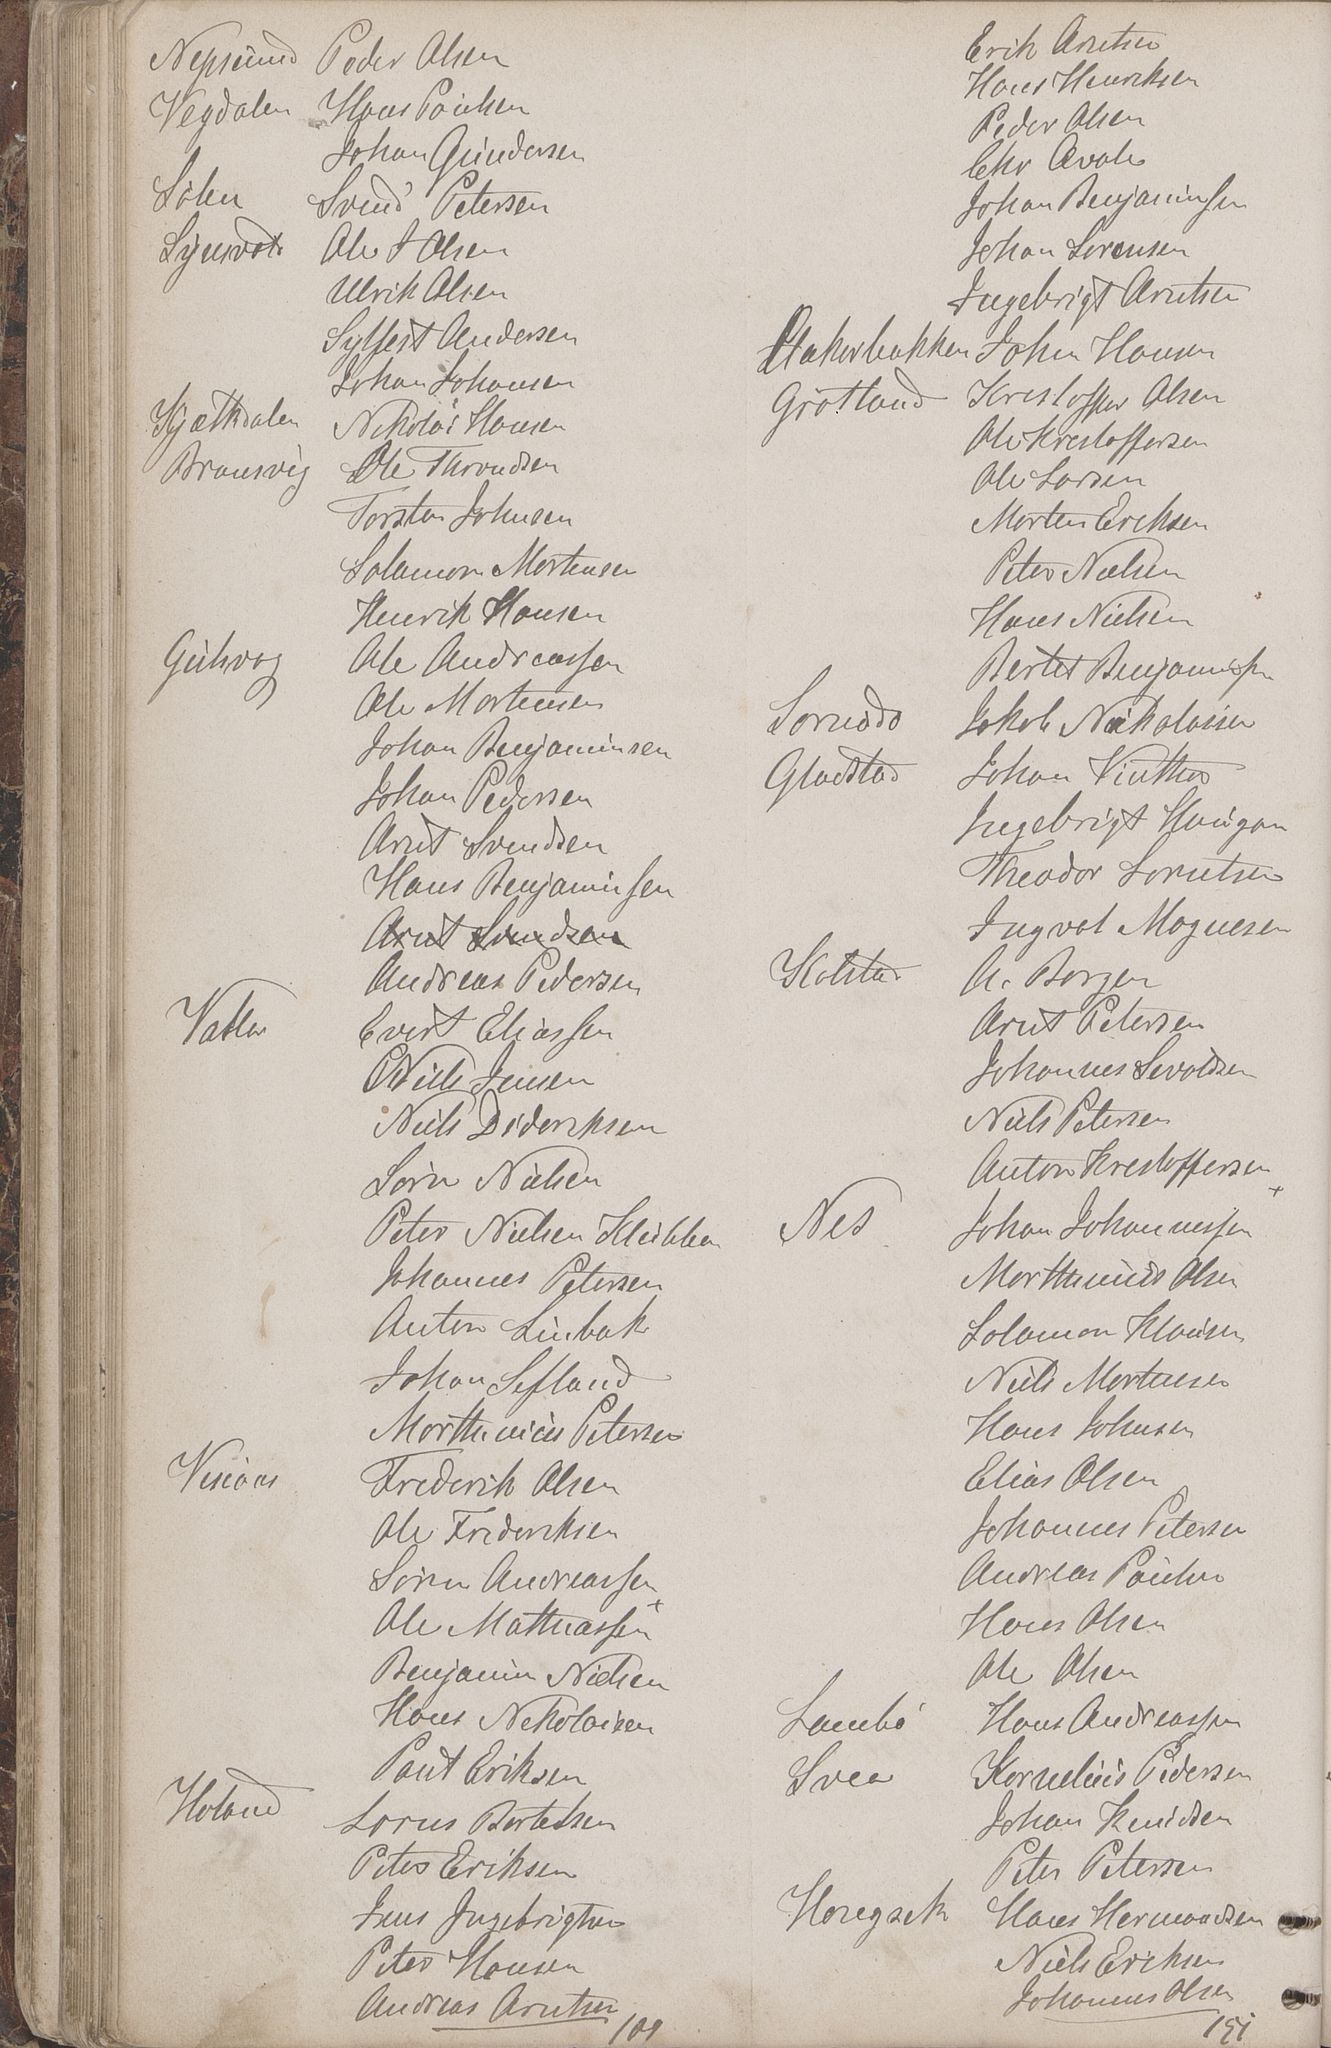 Nepsund Peder Olsen
Vegdalen Hans Paulsen
Johan Gundersen
Sölen Svend Petersen
Ole J Olsen
Ulrik Olsen
Sylfest Andersen
Johan Johansen
Kjætkdalen Nikolai Hansen
Bransvig Ole Throndsen
Torsten Johnsen
Salamon Mortensen
Henrik Hansen
Gulsvag Ole Andreassen
Ole Mortensen
Johan Benjaminsen
Johan Pedersen
Arnt Svendsen
Hans Benjaminsen
Arnt Svendsen
Andreas Pedersen
Vatlor Evert Eliassen
Niels Jensen
Niels Dideriksen
Sörn Nielsen
Peter Nielsen
Johannes Petersen
Anton Linbak
Johan Sefland
Morthinius Petersen
Visaas Frederik Olsen
Ole Frideriksen
Sörn Andreassen
Ole Mathiassen
Benjamin Nielsen
Hans Nekolaisen
Paul Eriksen
Holand Lorns Bertelsen
Peter Eriksen
Jens Ingebrigtsen
Peter Hansen
Andreas Arntsen
101
Erik Arntsen
Hans Henriksen
Peder Olsen
Chr
Johan Benjaminsen
Johan Sorensen
Ingebrigt Arntsen
John Hansen
Grötland Kristoffer Olsen
Ole Krestoffersen
Ole Larsen
Morten Eriksen
Peter Nielsen
Hans Nielsen
Bertel Benjaminsen
Sornodo Jakob Nikolaisen
Gladstad Johan Vinther
Ingebrigt Haugan
Theodor Lorntsen
Ingvol Magnesen
Kolstad A. Borgen
Arnt Petersen
Johannes Sevoldsen
Niels Petersen
Anton Krestoffersen
Nes Johan Johannessen
Morthinius Olsen
Solamon Klausen
Niels Mortensen
Hans Johnsen
Elias Olsen
Johannes Petersen
Andreas Paulsen
Hans Olsen
Ole Olsen
Sandbö Hans Andreassen
Svea Kornelius Pedersen
Johan Knudsen
Peter Petersen
Hongset Hans Hermandsen
Niels Eriksen
Johannes Olsen
151